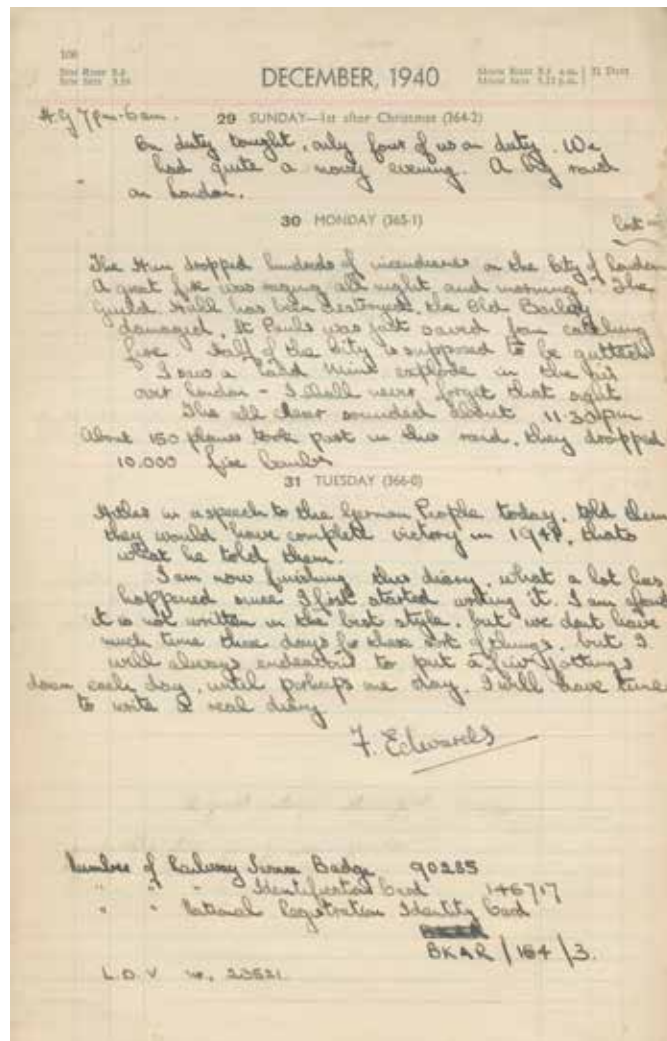 108
DECEMBER, 1940
31 Days
H.G 7pm-6am.
29 SUNDAY—1st after Christmas (364-2)
On duty tonight, only four of us on duty. We
had quite a noisy evening. A big raid
on London.
30 MONDAY (365-1)
last
The Hun dropped hundreds of incendiaries on the City of London
A great fire was raging all night, and morning. The
Guild Hall has been destroyed, the Old Bailey
damaged, St Pauls was just saved from catching
fire. Half of the City is supposed to be gutted.
I saw a Land Mine explode in the air
over London - I shall never forget that sight
The all clear sounded about 11-30pm
About 150 planes took part in this raid, they dropped
10.000 fire bombs
31 TUESDAY (366-0)
Hitler in a speech to the German People today, told them
they would have complete victory in 1941, thats
what he told them.
I am now finishing this diary, what a lot has
happened since I first started writing it. I am afraid
it is not written in the best style, but we dont have
much time these days for these sort of things, but I
will always endeavour to put a few jottings
down each day, until perhaps one day, I will have time
to write a real diary
F. Edwards
Number of Railway Service Badge 90285
" " " Identification Card 146717
" " National Registration Identity Card
BKAR / 164 / 3.
L.D.V no. 23521.